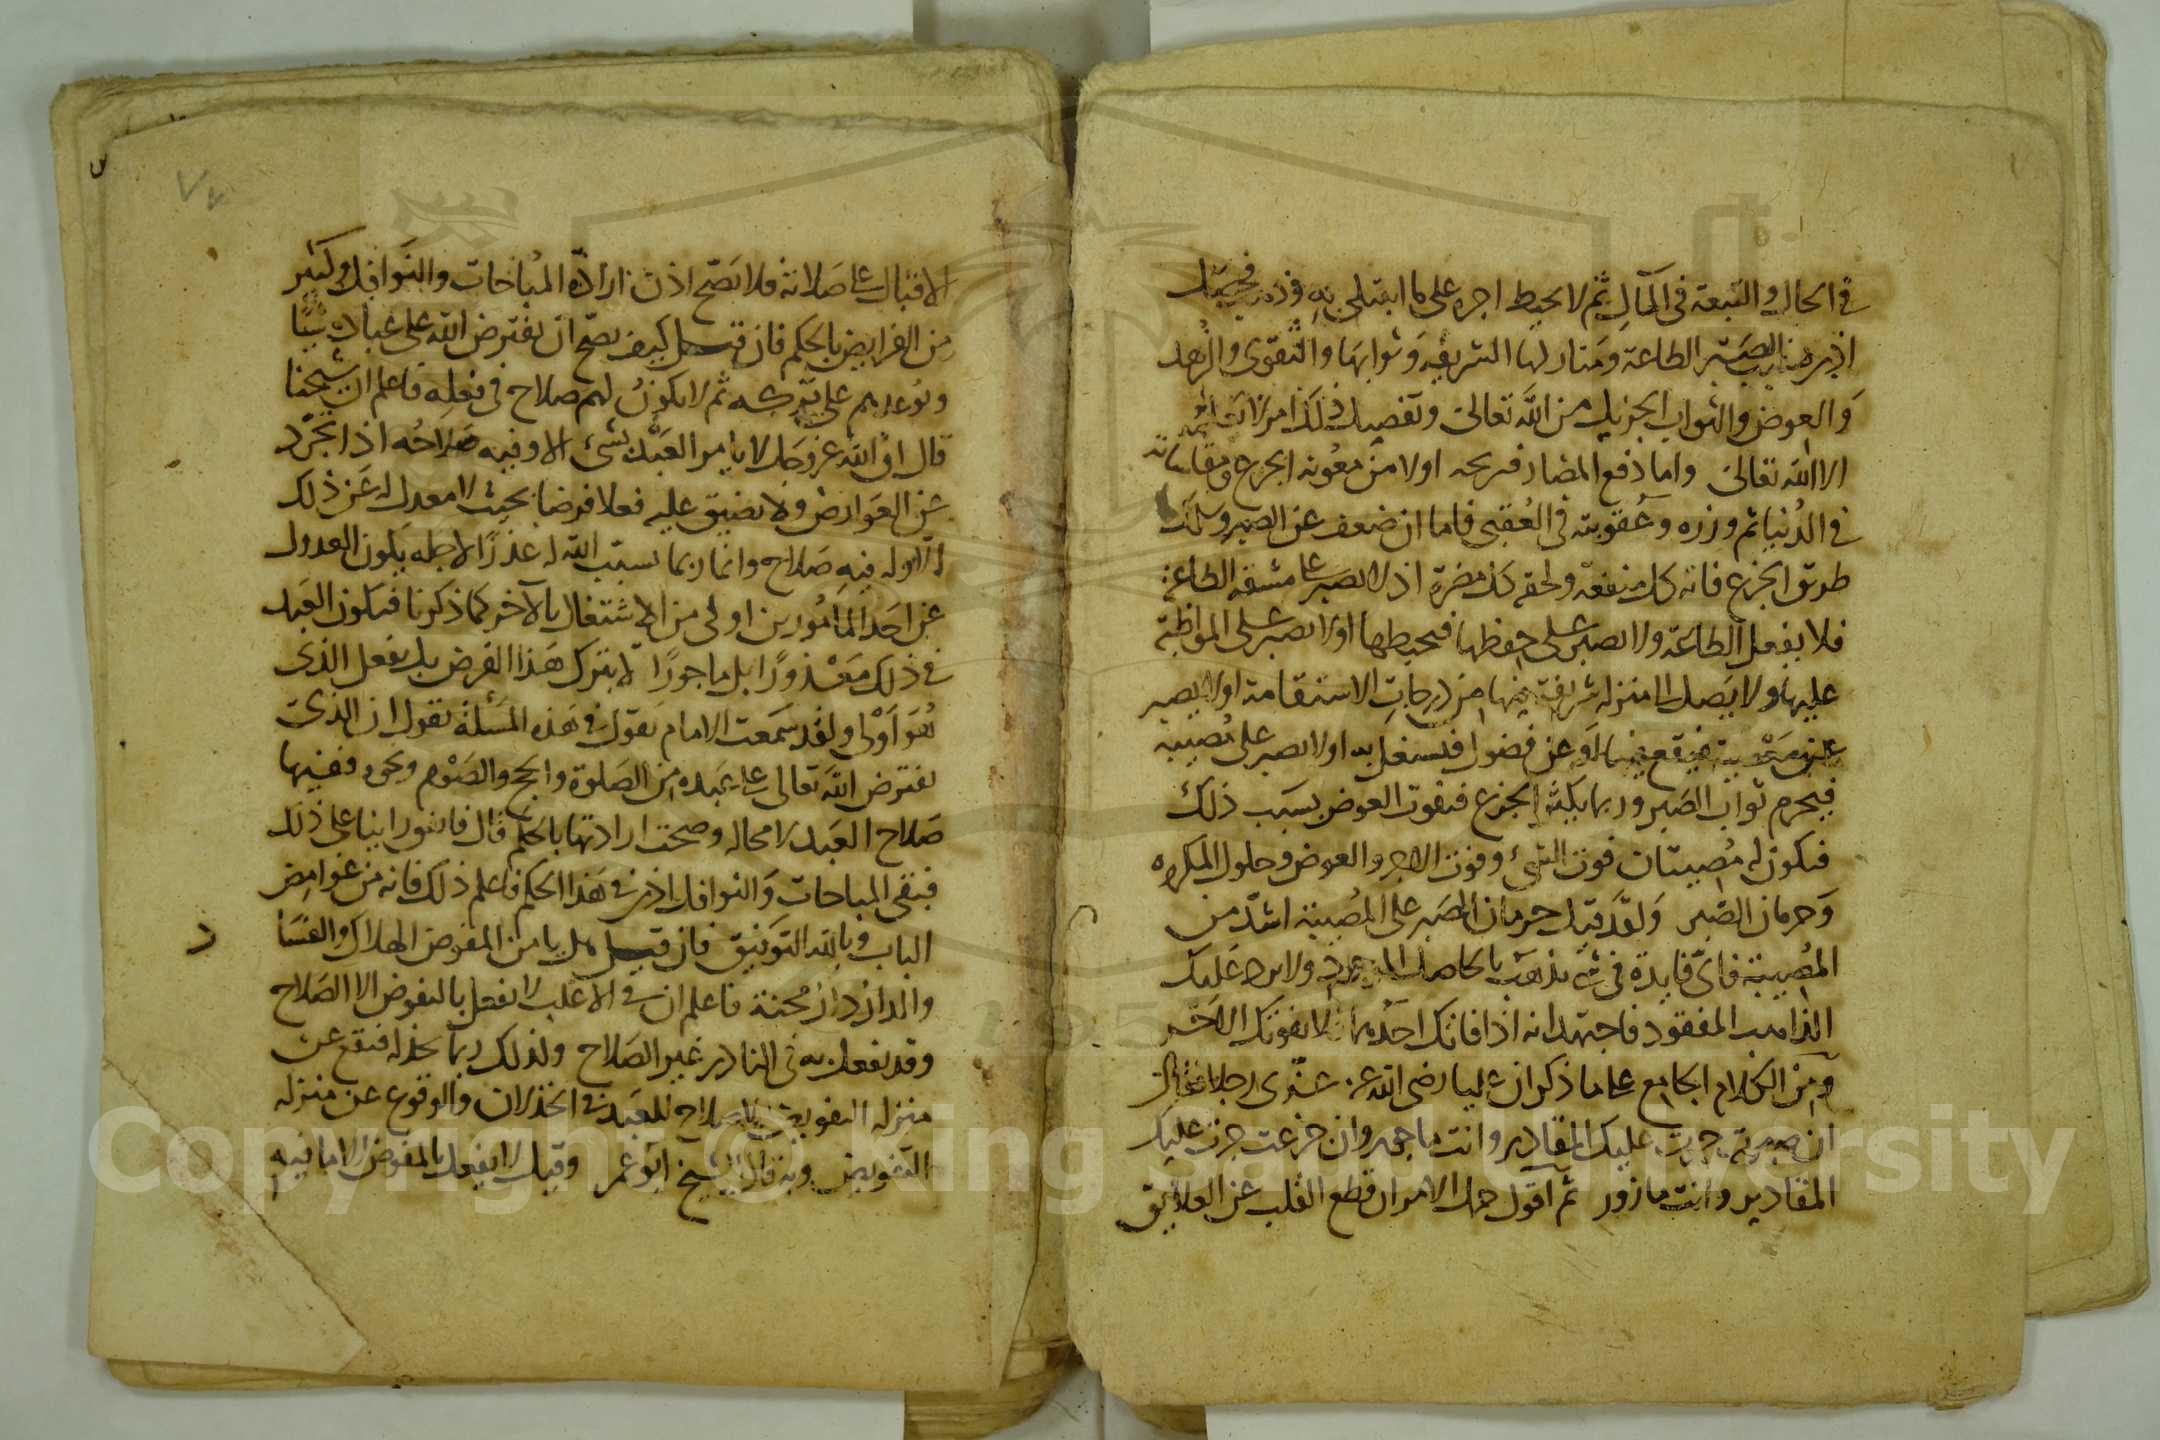 في الحال والتبعة في المآل ثم لا يحبط اجره على ما ابتلى به
اذن هنا بسبب الصبر الطاعة ومنازلها الشريفه وثوابها والتقوى والزهد
والعوض والثواب الجزيل من الله تعالى وتفصيل ذلك امر لا يعلمه
الا الله تعالى واما دفع المضار فريحه اولا من مؤنه الجزع ومقاساته
في الدنيا ثم وزره وعقوبته في العقبى فاما ان ضعف عن الصبر وسلك
طريق الجزع فاته كل منفعة ولحقه كل مضرة اذ لا يصبر على مشقة الطاعة
فلا يفعل الطاعة ولا يصبر على حفظها فيحبطها اولا يصبر على المواظبة
عليها ولا يصل الى منزلة شريفة فيها من درجات الاستقامة اولا يصبر
عن معصية فيقع فيها او عن فضول فيشتغل به اولا يصبر على مصيبة
فيحرم ثواب الصبر وربما يكثر الجزع فيفوت العوض بسبب ذلك
فيكون له مصيبتان فوت الشئ وفوت الاجر والعوض وحلول المكروه
وحرمان الصبر ولقد قيل حرمان الصبر على المصيبة اشد من
المصيبة فاى فايدة في شئ يذهب بالحاصل الموجود ولا يرد عليك
الذاهب المفقود فاجتهد انه اذا فاتك احدهما لا يفوتك الاخر
ومن الكلام الجامع على ما ذكر ان عليا رضى الله عنه عزى رجلا فقال
ان صبرت جرت عليك المقادير وانت ماجور وان جزعت جرت عليك
المقادير وانت مازور ثم اقول جملة الامر ان قطع القلب عن العلايق
٧٧
الاقبال على صلاته فلا تصح اذن ارادة المباحات والنوافل وكثير
من الفرايض بالحكم فان قيل كيف يصح ان يفترض الله على عباده شيئا
ويوعدهم على تركه ثم لا يكون لهم صلاح في فعله فاعلم ان شيخنا
قال ان الله عز وجل لا يامر العبد بشئ الا وفيه صلاحه اذا تجرد
عن العوارض ولا يضيق عليه فعلا فرضا بحيث لا معدل له عن ذلك
الا وله فيه صلاح وانما ربما يسبب الله له عذرا لاجله يكون العدول
عن احد المامورين اولى من الاشتغال بالآخر كما ذكرنا فيكون العبد
في ذلك معذورا بل ماجورا لا بترك هذا الفرض بل بفعل الذى
هو اولى ولقد سمعت الامام يقول في هذه المسئلة يقول ان الذى
يفترض الله تعالى على عبده من الصلوة والحج والصوم ونحوه ففيها
صلاح العبد لا محالة وصحت ارادتها بالحكم قال فاتفق راينا على ذلك
فبقى المباحات والنوافل اذن في هذا الحكم فاعلم ذلك فانه من غوامض
الباب وبالله التوفيق فان قيل هل يامن المفوض الهلاك والفساد
والدار دار محنة فاعلم ان في الاغلب لا يفعل بالمفوض الا الصلاح
وقد يفعل به في النادر غير الصلاح ولذلك ربما يخذله فيقع عن
منزلة التفويض لا صلاح للعبد في الخذلان والوقوع عن منزلة
التفويض وبه قال الشيخ ابو عمر وقيل لا يفعل بالمفوض الا ما فيه
Copyright © King Saud University